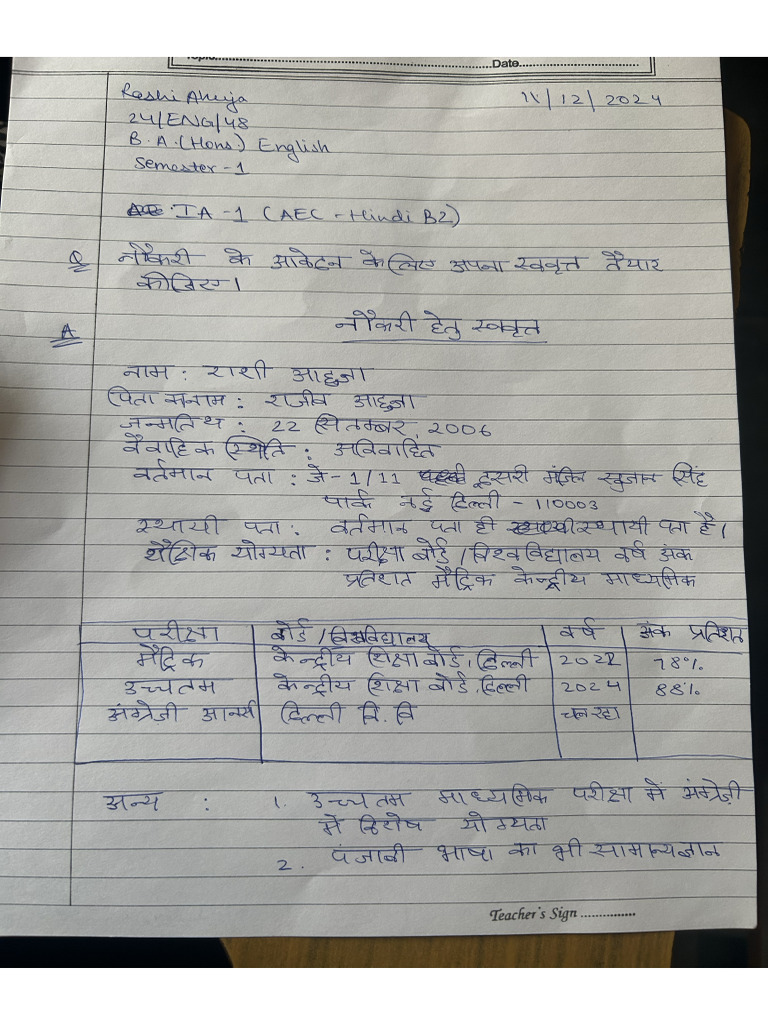 Topic..........Date..........
Rashi Ahuja 11/12/2024
24/ENG/48
B.A.(Hons.) English
Semester-1
IA-1 (AEC-Hindi B2)
Q नौकरी के आवेदन के लिए अपना स्ववृत्त तैयार
कीजिए।
A नौकरी हेतु स्ववृत्त
नाम : राशी आहुजा
पिता का नाम : राजीव आहुजा
जन्मतिथ : 22 सितम्बर, 2006
वैवाहिक स्थिति : अविवाहित
वर्तमान पता : जे-1/11 दूसरी मंजिल सुजान सिंह
पार्क नई दिल्ली - 110003
स्थायी पता : वर्तमान पता ही स्थायी पता है।
शैक्षिक योग्यता : परीक्षा बोर्ड/विश्वविद्यालय वर्ष अंक
प्रतिशत मैट्रिक केन्द्रीय माध्यमिक
परीक्षा बोर्ड/विश्वविद्यालय वर्ष अंक प्रतिशत
मैट्रिक केन्द्रीय शिक्षा बोर्ड, दिल्ली 2022 78%
उच्चतम केन्द्रीय शिक्षा बोर्ड, दिल्ली 2024 88%
अंग्रेज़ी आनर्स दिल्ली वि. वि चल रहा
अन्य : 1. उच्चतम माध्यमिक परीक्षा में अंग्रेज़ी
में विशेष योग्यता
2. पंजाबी भाषा का भी सामान्य ज्ञान
Teacher's Sign ...............